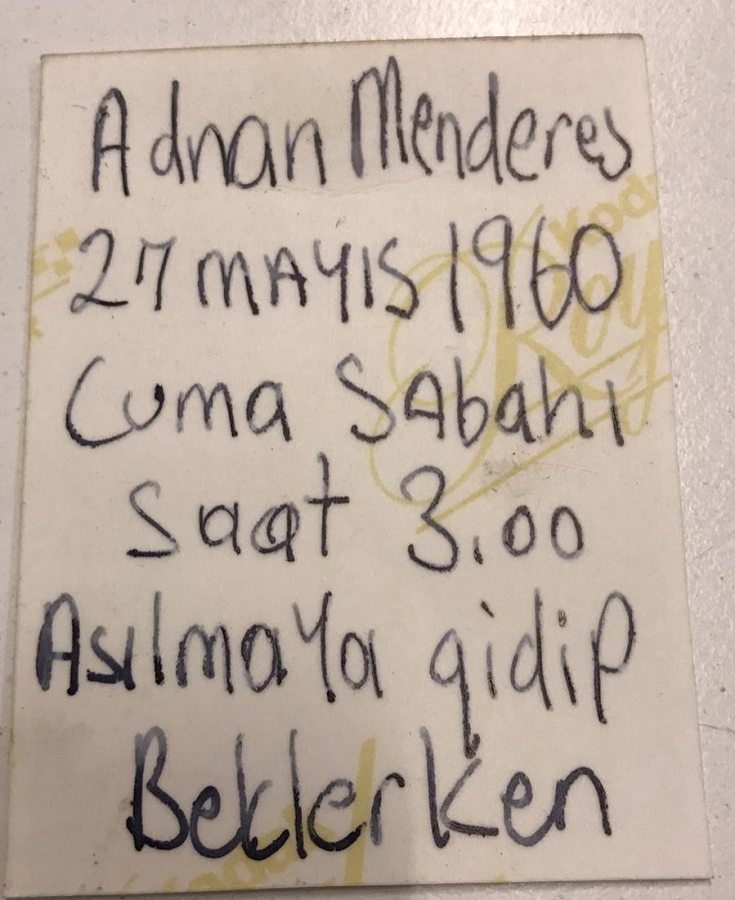 Adnan Menderes
27 MAYIS 1960
Cuma SAbahı
Saat 3.00
AsılmaYa gidip
Beklerken